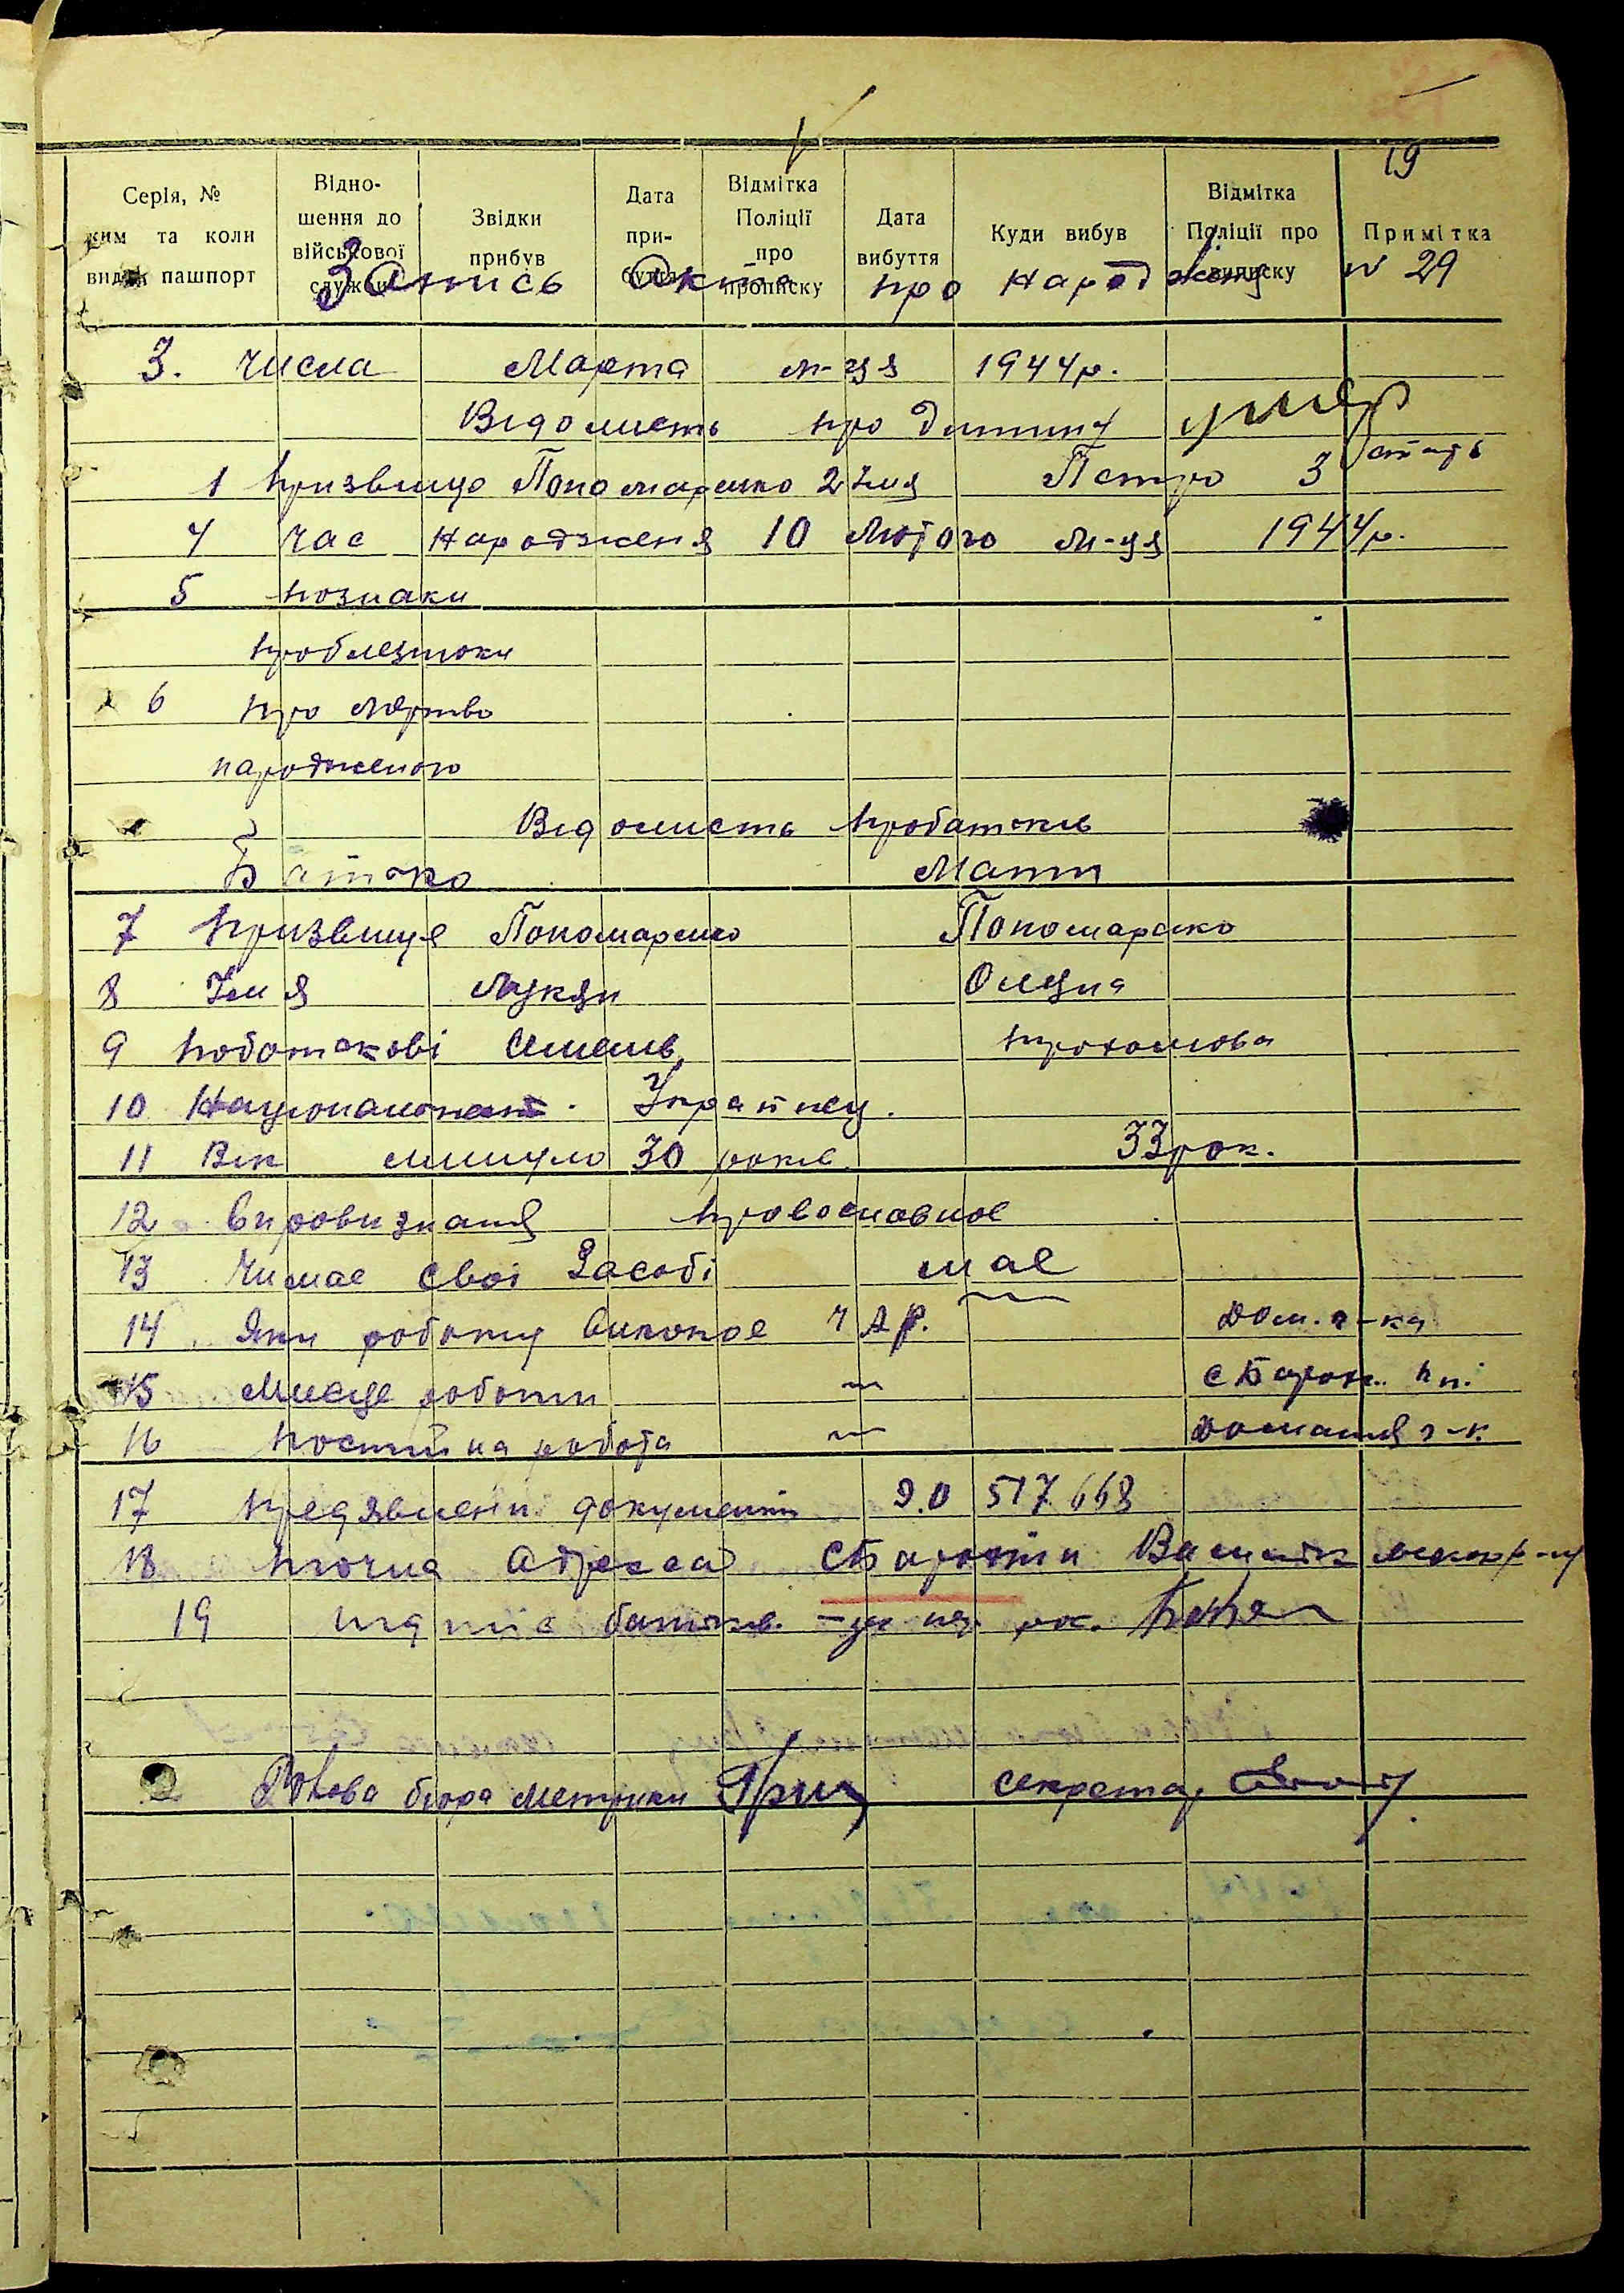 19
Серія, № ким та коли видан пашпорт
Відно-шення до військової служби
Звідки прибув
Дата при-буття
Відмітка Поліції про прописку
Дата вибуття
Куди вибув
Відмітка Поліції про виписку
Примітка
Запись Акта про народженя № 29
3. числа Марта м-ця 1944р.
Відомисть про дитину умер
1 призвище Пономаренко 2 Імя Петро 3 стать
4 час народженя 10 Лютого м-ця 1944р.
5 познаки
проблезтоки
6 про мертво
народженого
Відомисть пробатьків
Батько Мати
7 призвище Пономаренко Пономаренко
8 Імя Лукян Олена
9 побатькові Семенів
10 Национальність. Українец.
11 Вік минуло 30 років 33 рок.
12 Вировизнаня православное
13 Чимае своі Засобі мае
14 Яки роботу виконое дом. г-ка
15 Мисце роботи
16 постійна робота домашня г-к.
17 предявлени документи 517.668
18 точна Адреса
19 батьків.
Голова бюра метрики секретар